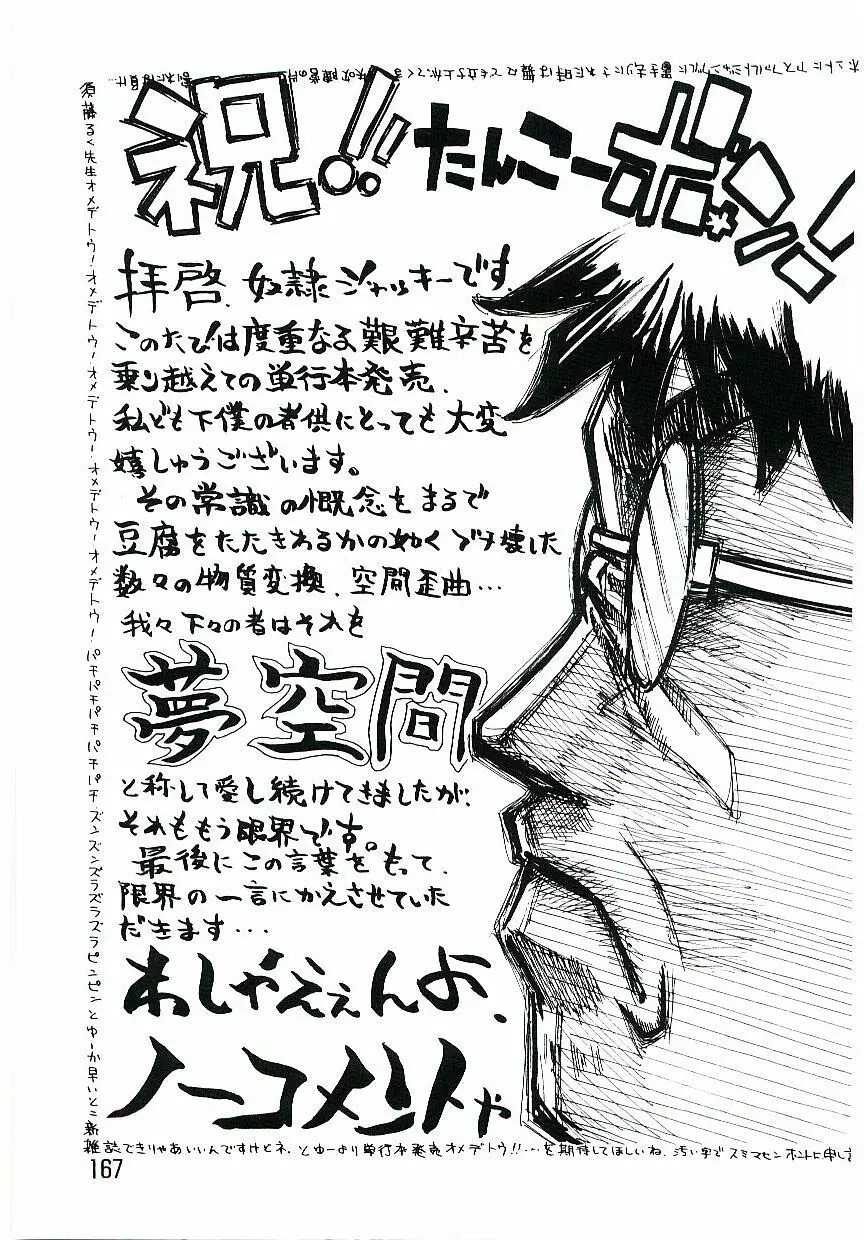 祝!! たんこーボン!!
拝啓、奴隷ジャッキーです。
このたびは度重なる艱難辛苦を
乗り越えての単行本発売、
私ども下僕の者供にとっても大変
嬉しゅうございます。
その常識の慨念をまるで
豆腐をたたきわるかの如くブチ壊した
数々の物質変換、空間歪曲…
我々下々の者はそれを
夢空間
と称して愛し続けてきましたが、
それももう限界です。
最後にこの言葉をもって、
限界の一言にかえさせていた
だきます…
わしゃええんよ、
ノーコメントや
須藤るく先生オメデトウ!オメデトウ!オメデトウ!オメデトウ!オメデトウ!パチパチパチパチパチパチ ズンズンズラズラズラピンピンとゆーか早いとこ新
雑誌できりゃあいいんですけどネ、とゆーより単行本発売オメデトウ!!…を期待してほしいね、汚い字でスミマセンホントに申し
ホントにアスファルトジャングルに置き去りにされた時は
167